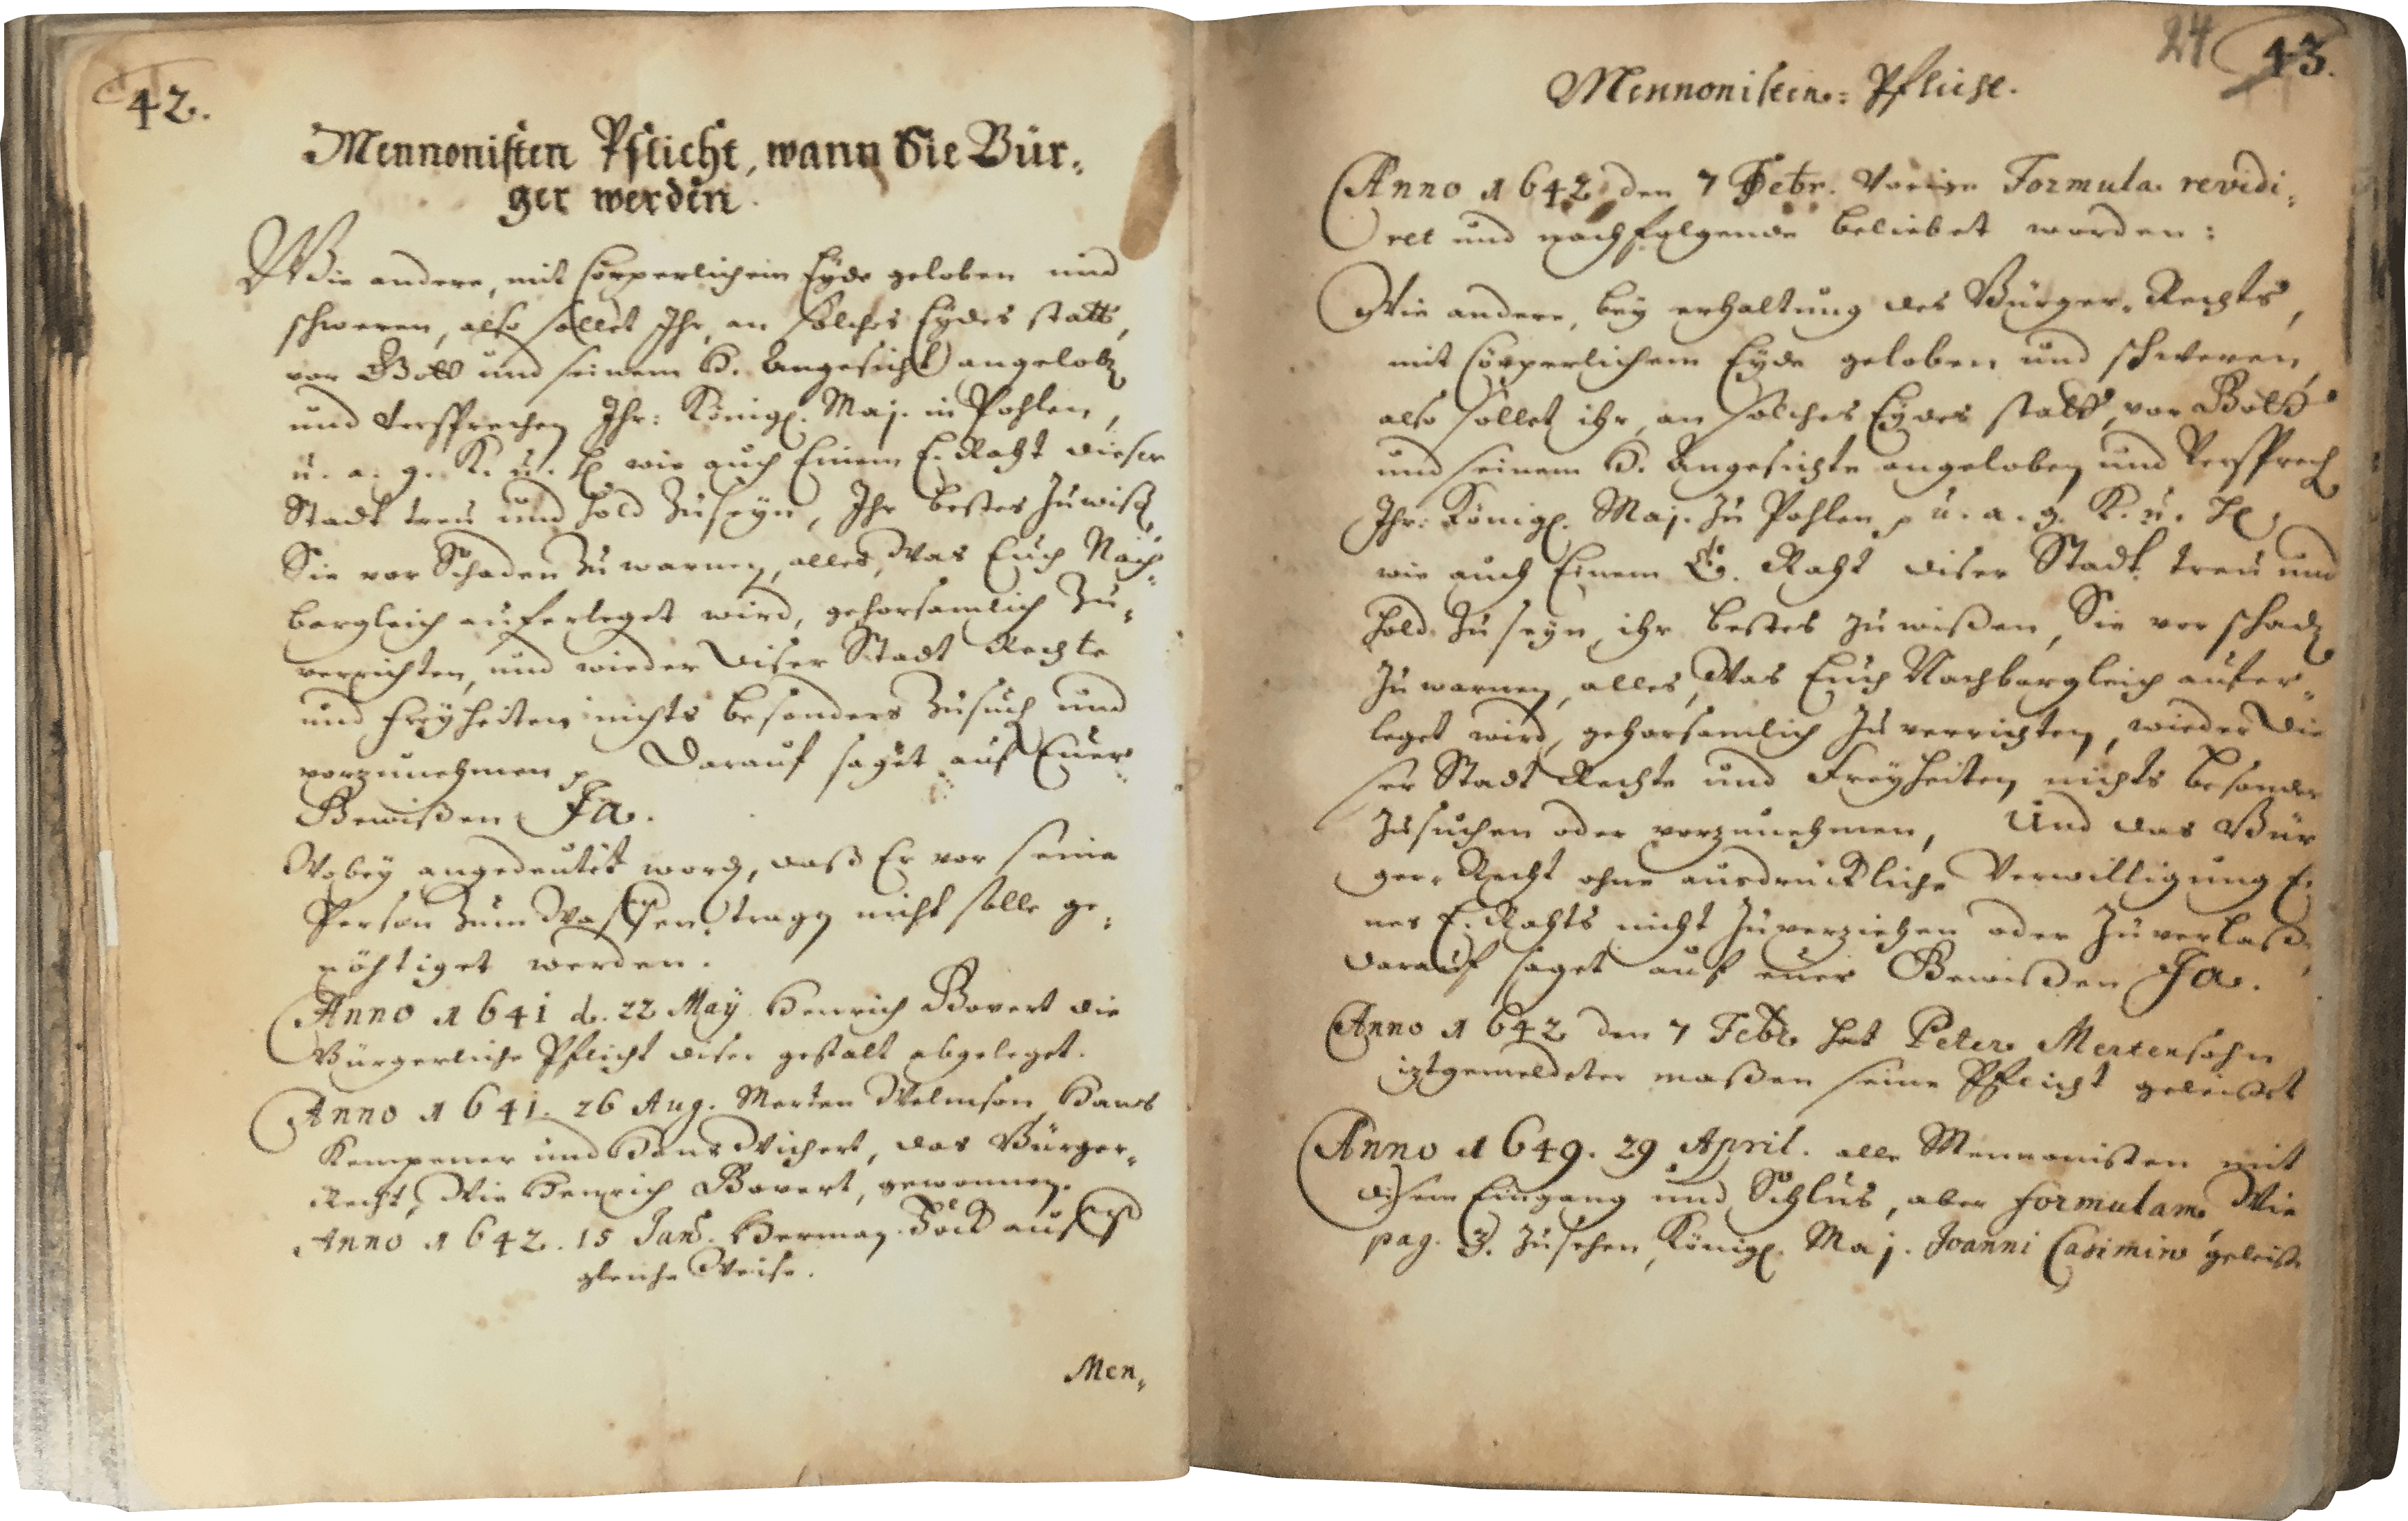 42.
Mennonisten Pflicht, wann Sie Bür-
ger werden.
Wie andere, mit Cörperlichem Eyde geloben und
schweren, also sollet Ihr, an solches Eydes statt,
vor Gott und seinem H. Angesicht angeloben
und versprechen Ihr: Königl. Maj. in Pohlen,
u. a. g. K. u. H. wie auch Einem E. Raht dieser
Stadt treu und hold zuseyn, Ihr bestes zuwißen,
Sie vor Schaden zu warnen, alles, Was Euch Nach-
bargleich auferleget wird, gehorsamlich zu-
verrichten, und wieder diser Stadt Rechte
und Freyheiten nichts besonders zusuchen und
vorzunehmen. Darauf saget auf Euer
Gewißen Ja.
Wobey angedeutet worden, daß Er vor seine
Person zum Waffen tragen nicht solle ge-
nöhtiget werden.
Anno 1641 d. 22 May Henrich Bovert die
Bürgerliche Pflicht diser gestalt abgeleget.
Anno 1641. 26 Aug. Merten Welmson, Hans
Kempener und Hans Wichert, das Bürger-
Recht, Wie Henrich Bovert, gewonnen.
Anno 1642. 15 Jan. HermanFöck auf
gleiche Weise.
Men-
24 43.
Mennonisten-Pflicht.
Anno 1642 den 7 Febr. Vorige Formula revidi-
ret und nachfolgende beliebet worden:
Wie andere, bey erhaltung des Bürger-Rechts,
mit Cörperlichem Eyde geloben und schweren,
also sollet ihr, an solches Eydes statt, vor Gott
und seinem H. Angesichte angeloben und versprechen
Ihr: Königl. Maj. zu Pohlen, u. a. g. K. u. H.
wie auch Einem E. Raht diser Stadt treu und
hold zuseyn, ihr bestes zuwißen, Sie vor schaden
zu warnen, alles, Was Euch Nachbargleich aufer-
leget wird, gehorsamlich zu verrichten, wieder die
ser Stadt Rechte und Freyheiten nichts besonders
zusuchen oder vorzunehmen, Und das Bür
ger-Recht ohne ausdrückliche Verwilligung Ei
nes E. Rahts nicht zuverziehen oder zuverlaßen,
darauf saget auf euer Gewißen Ja.
Anno 1642 den 7 Febr. hat Peter Mertensohn
iztgemeldeter maßen seine Pflicht geleistet
Anno 1649. 29 April. alle Mennonisten mit
disem Eingang und Schlus, aber formulam, Wie
pag. 3. zusehen, Königl. Maj. Joanni Casimiro geleist.